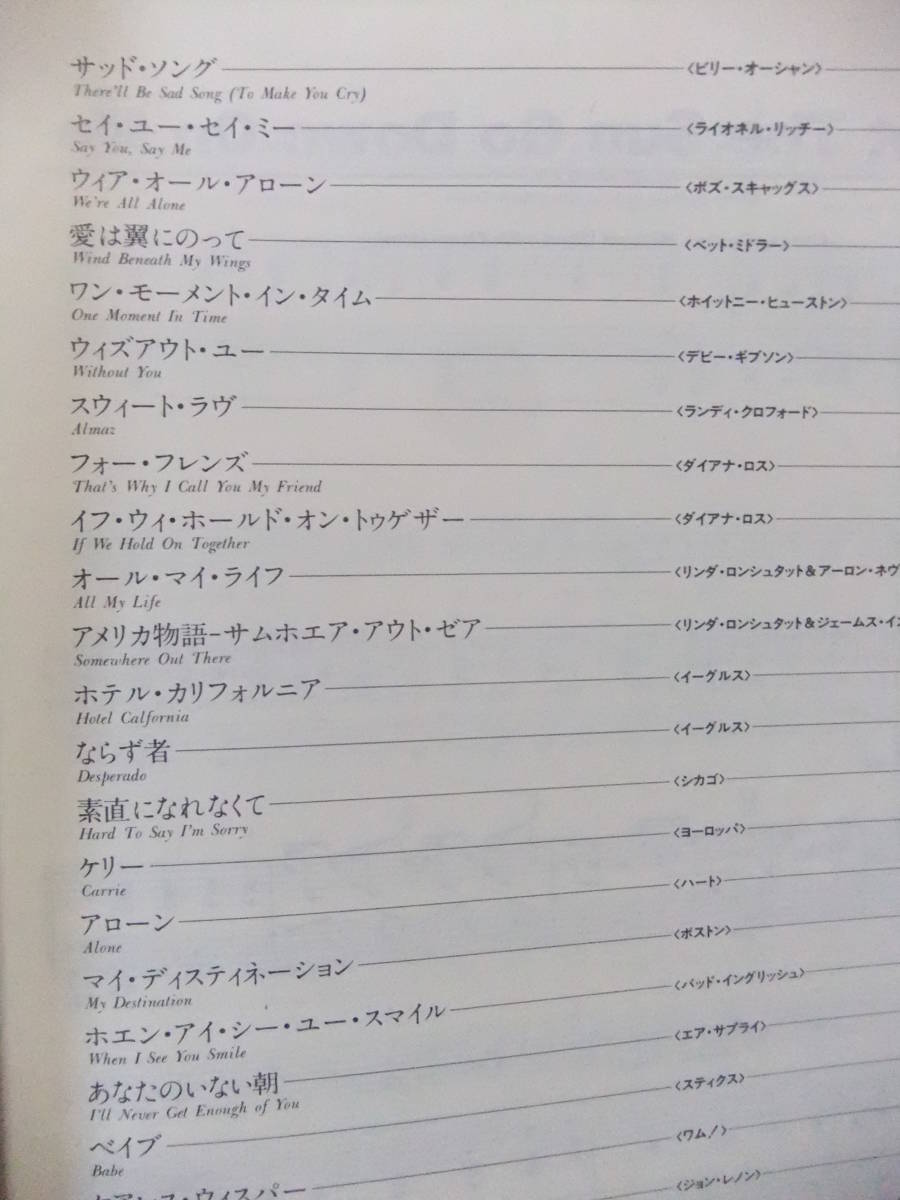 サッド・ソング 〈ビリー・オーシャン〉
There'll Be Sad Song (To Make You Cry)
セイ・ユー・セイ・ミー 〈ライオネル・リッチー〉
Say You, Say Me
ウィア・オール・アローン 〈ボズ・スキャッグス〉
We're All Alone
愛は翼にのって 〈ベット・ミドラー〉
Wind Beneath My Wings
ワン・モーメント・イン・タイム 〈ホイットニー・ヒューストン〉
One Moment In Time
ウィズアウト・ユー 〈デビー・ギブソン〉
Without You
スウィート・ラヴ 〈ランディ・クロフォード〉
Almaz
フォー・フレンズ 〈ダイアナ・ロス〉
That's Why I Call You My Friend
イフ・ウィ・ホールド・オン・トゥゲザー 〈ダイアナ・ロス〉
If We Hold On Together
オール・マイ・ライフ 〈リンダ・ロンシュタット&アーロン・ネヴ
All My Life
アメリカ物語-サムホエア・アウト・ゼア 〈リンダ・ロンシュタット&ジェームス・イ
Somewhere Out There
ホテル・カリフォルニア 〈イーグルス〉
Hotel Calfornia
ならず者 〈イーグルス〉
Desperado
素直になれなくて 〈シカゴ〉
Hard To Say I'm Sorry
ケリー 〈ヨーロッパ〉
Carrie
アローン 〈ハート〉
Alone
マイ・ディスティネーション 〈ボストン〉
My Destination
ホエン・アイ・シー・ユー・スマイル 〈バッド・イングリッシュ〉
When I See You Smile
あなたのいない朝 〈エア・サプライ〉
I'll Never Get Enough of You
ベイブ 〈スティクス〉
Babe
ケアレス・ウィスパー 〈ワム!〉
〈ジョン・レノン〉